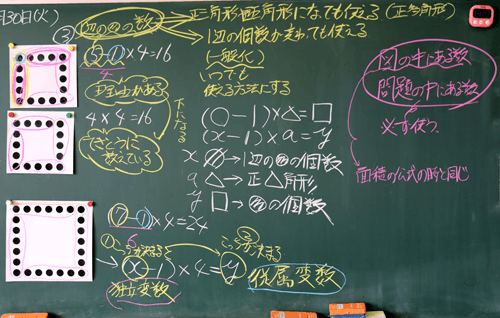 月30日(火)
③ 辺の●の数 正三角形や正五角形になっても使える (正多角形)
1辺の個数が変わっても使える
(一般化)
いつでも
使える方法にする
(5-1)×4=16
4
理由がある
4×4=16
てきとうに
数えている
下になる
(○-1)×△=□
(x-1)×a=y
x ○→1辺の●の個数
a △→正△角形
y □→●の個数
(7-1)×4=24
6
(x-1)×4=y
独立変数
従属変数
図の中にある数
問題の中にある数
必ず使う
面積の公式の時と同じ